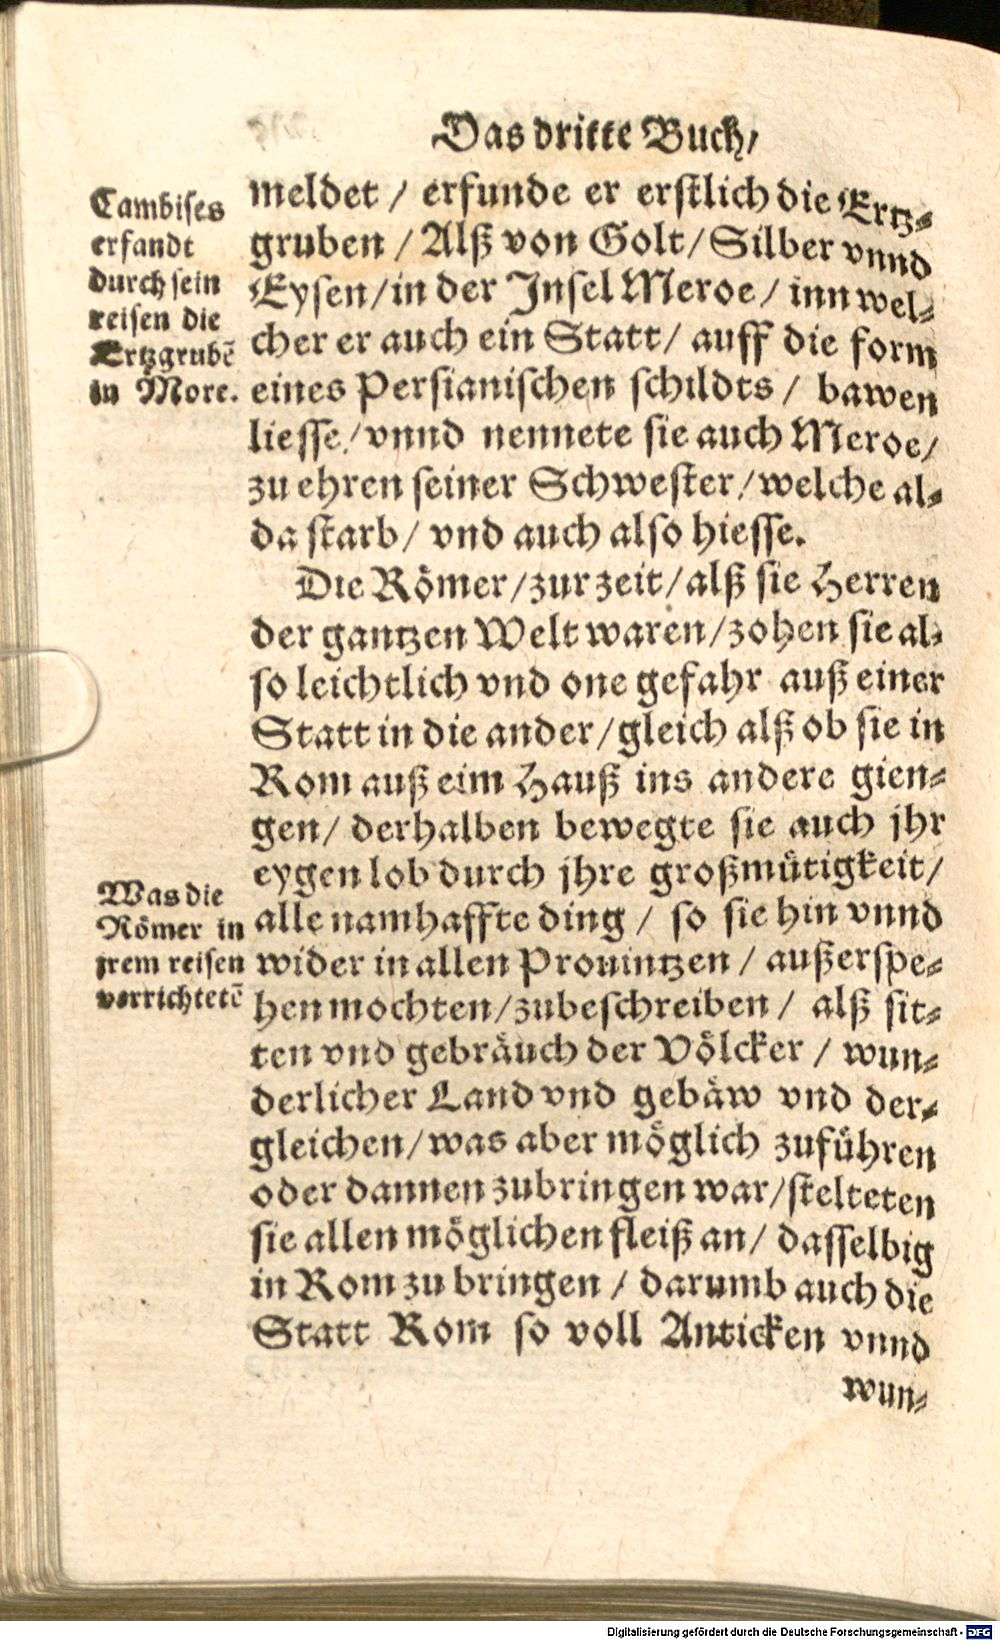 Das dritte Buch/
Cambises
erfandt
durch sein
reisen die
Ertzgrubē
in More.
meldet / erfunde er erstlich die Ertz-
gruben / Alß von Golt/Silber vnnd
Eysen/in der Jnsel Meroe/ inn wel-
cher er auch ein Statt/ auff die form
eines Persianischen schildts / bawen
liesse/vnnd nennete sie auch Meroe/
zu ehren seiner Schwester/welche al-
da starb/ vnd auch also hiesse.
Die Römer/zur zeit/alß sie Herren
der gantzen Welt waren/zohen sie al-
so leichtlich vnd one gefahr auß einer
Statt in die ander/gleich alß ob sie in
Rom auß eim Hauß ins andere gien-
gen/ derhalben bewegte sie auch jhr
eygen lob durch jhre großmütigkeit/
Was die
Römer in
jrem reisen
verrichtetē
alle namhaffte ding / so sie hin vnnd
wider in allen Prouintzen / außerspe-
hen mochten/zubeschreiben / alß sit-
ten vnd gebräuch der Völcker / wun-
derlicher Land vnd gebäw vnd der-
gleichen/was aber möglich zuführen
oder dannen zubringen war/stelteten
sie allen möglichen fleiß an/ dasselbig
in Rom zu bringen / darumb auch die
Statt Rom so voll Anticken vnnd
wun-
Digitalisierung gefördert durch die Deutsche Forschungsgemeinschaft - DFG